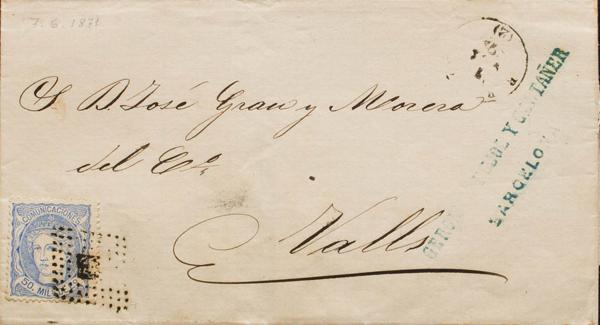 7. 6. 1871
S. D. José Grau y Morera
del Co.
Valls
Y
BARCELONA
COMUNICACIONES
50. MIL